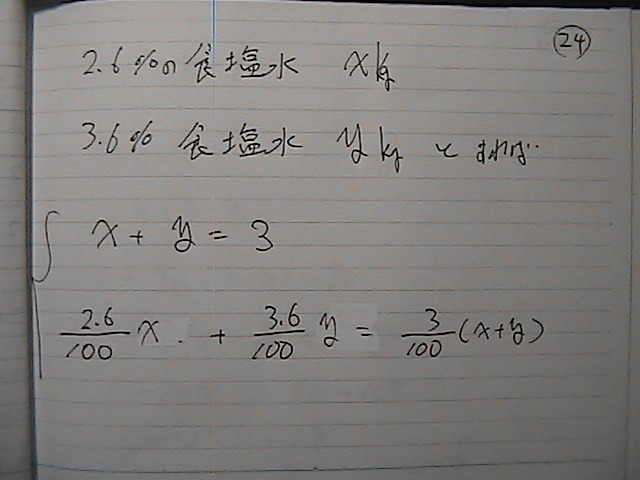 24
2.6%の食塩水 xkg
3.6% 食塩水 ykg とすれば
x + y = 3
2.6/100 x + 3.6/100 y = 3/100 (x+y)